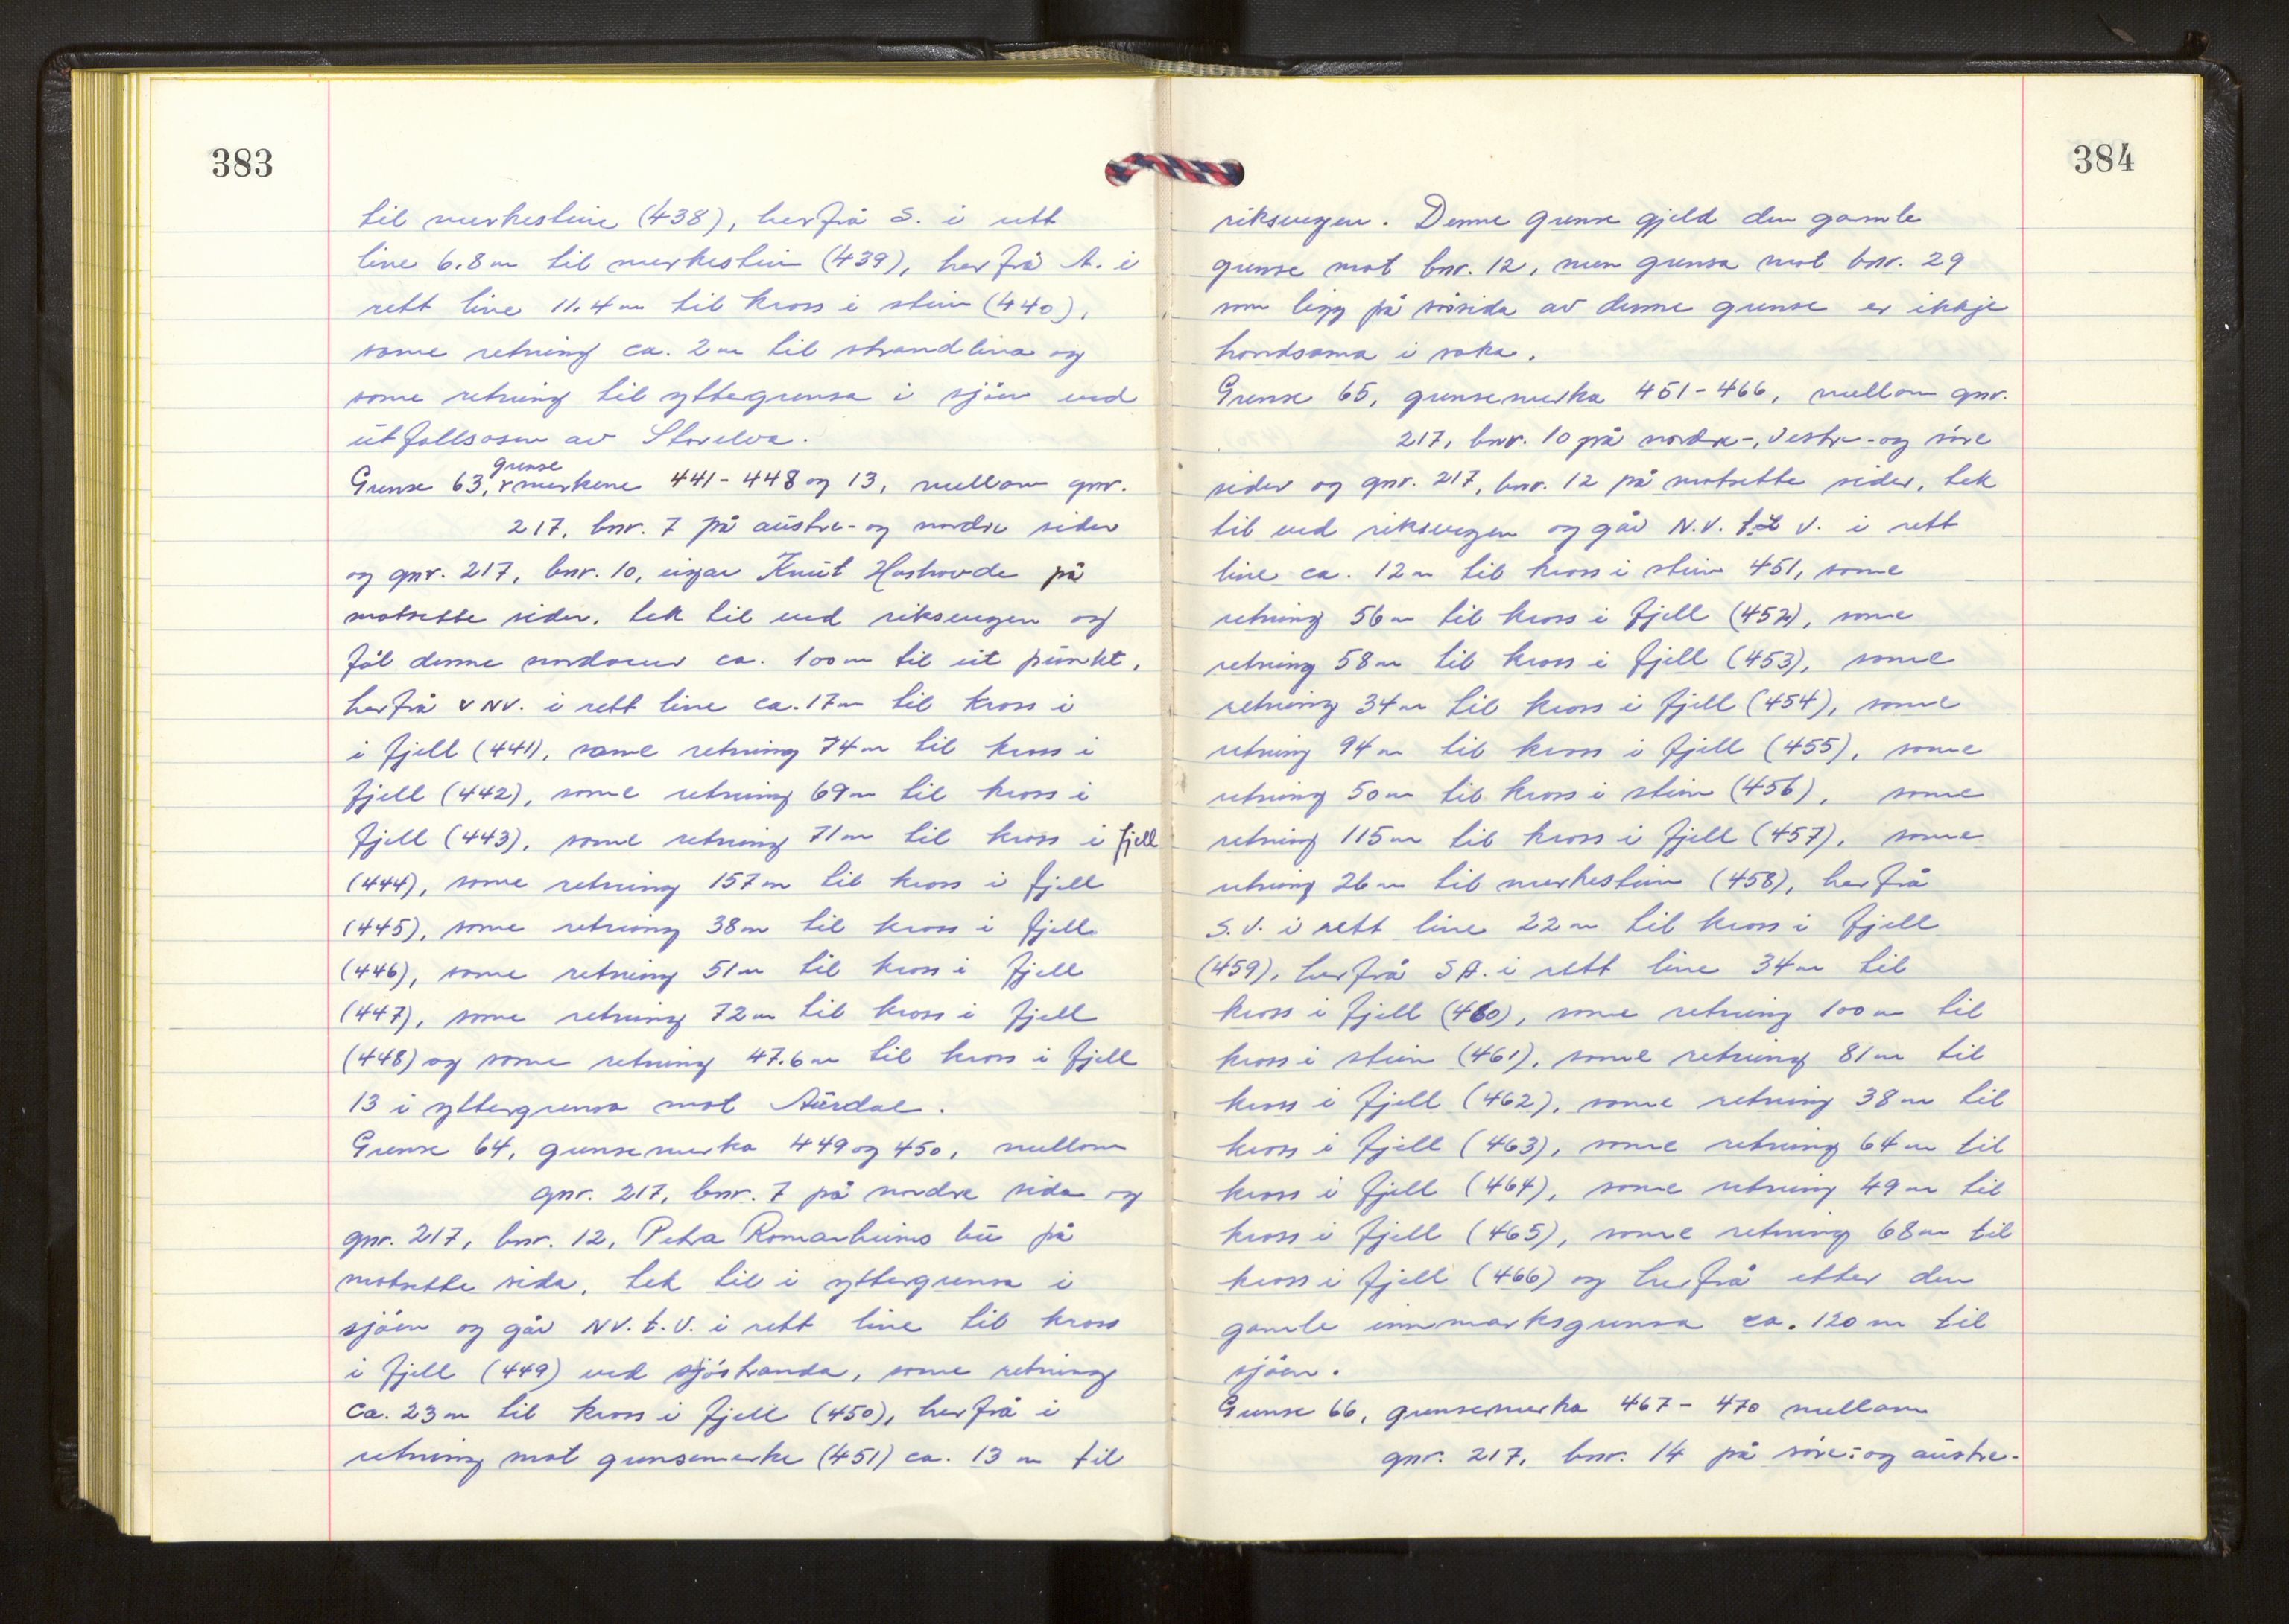 383
til merkesteine (438), herfrå S. i rett
line 6.8 m til merkestein (439), herfrå A. i
rett line 11.4 m til kross i stein (440),
same retning ca. 2 m til strandlina og
same retning til yttergrensa i sjøen ved
utfallsosen av Storelva.
grense
Grense 63, merkene 441-448 og 13, mellom gnr.
217, bnr. 7 på austre- og nordre sider
og gnr. 217, bnr. 10, eigar Knut Hashovde på
motsette sider, tek til ved riksvegen og
føl denne nordover ca. 100 m til eit punkt,
herfrå VNV. i rett line ca. 17 m til kross i
i fjell (441), same retning 74 m til kross i
fjell (442), same retning 69 m til kross i
fjell (443), same retning 71 m til kross i fjell
(444), same retning 157 m til kross i fjell
(445), same retning 38 m til kross i fjell
(446), same retning 51 m til kross i fjell
(447), same retning 72 m til kross i fjell
(448) og same retning 47.6 m til kross i fjell
13 i yttergrensa mot Aurdal.
Grense 64, grensemerka 449 og 450, mellom
gnr. 217, bnr. 7 på nordre sida og
gnr. 217, bnr. 12, Petra Romarheims bu på
motsette sida, tek til i yttergrensa i
sjøen og går NV. t. V. i rett line til kross
i fjell (449) ved sjøstranda, same retning
ca. 23 m til kross i fjell (450), herfrå i
retning mot grensemerke (451) ca. 13 m til
384
riksvegen. Denne grense gjeld den gamle
grense mot bnr. 12, men grensa mot bnr. 29
som ligg på sørsida av denne grense er ikkje
handsama i saka.
Grense 65, grensemerka 451-466, mellom gnr.
217, bnr. 10 på nordre-, vestre- og søre
sider og gnr. 217, bnr. 12 på motsette sider, tek
til ved riksvegen og går N.V. til V. i rett
line ca. 12 m til kross i stein 451, same
retning 56 m til kross i fjell (452), same
retning 58 m til kross i fjell (453), same
retning 34 m til kross i fjell (454), same
retning 94 m til kross i fjell (455), same
retning 50 m til kross i stein (456), same
retning 115 m til kross i fjell (457), same
retning 26 m til merkestein (458), herfrå
S.V. i rett line 22 m til kross i fjell
(459), herfrå SA. i rett line 34 m til
kross i fjell (460), same retning 100 m til
kross i stein (461), same retning 81 m til
kross i fjell (462), same retning 38 m til
kross i fjell (463), same retning 64 m til
kross i fjell (464), same retning 49 m til
kross i fjell (465), same retning 68 m til
kross i fjell (466) og herfrå etter den
gamle innmarksgrensa ca. 120 m til
sjøen.
Grense 66, grensemerka 467-470 mellom
gnr. 217, bnr. 14 på søre- og austre-